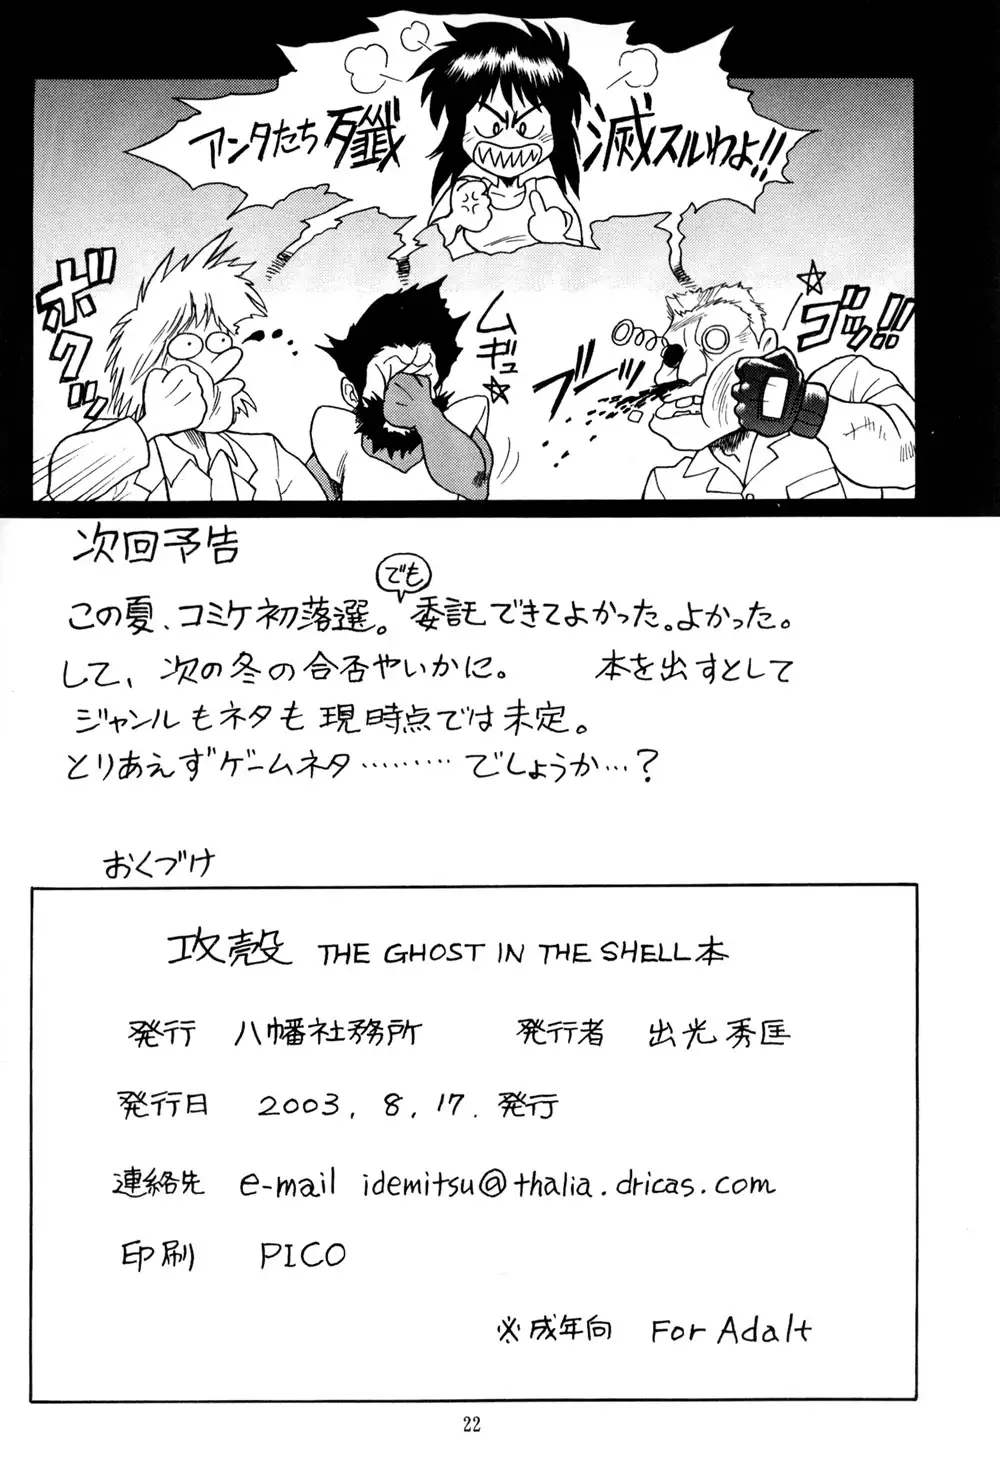 アンタたち殲滅スルわよ!!
ボクッ
ムギュ☆
ブーッ
ゴッ!!
次回予告
この夏、コミケ初落選。でも委託できてよかった。よかった。
して、次の冬の合否やいかに。 本を出すとして
ジャンルもネタも現時点では未定。
とりあえずゲームネタ………でしょうか…?
おくづけ
攻殻 THE GHOST IN THE SHELL本
発行 八幡社務所 発行者 出光秀匡
発行日 2003. 8. 17. 発行
連絡先 e-mail idemitsu@thalia.dricas.com
印刷 PICO
※成年向 For Adalt
22